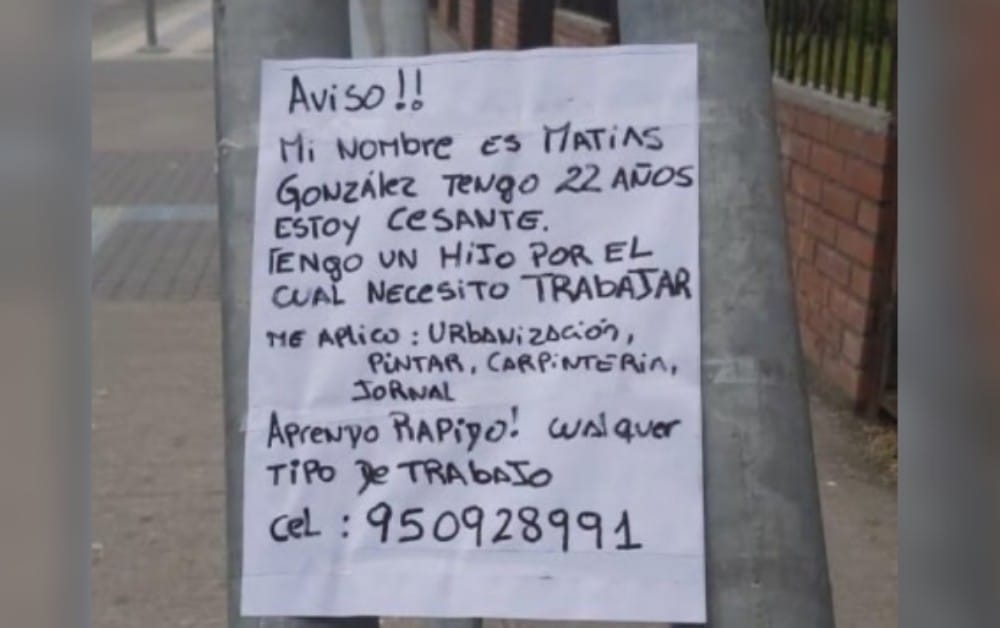 Aviso!!
Mi NOMBRE ES MATIAS
GONZÁLEZ TENGO 22 AÑOS
ESTOY CESANTE.
TENGO UN HIJO POR EL
CUAL NECESITO TRABAJAR
ME APLICO : URBANIZACIÓN,
PINTAR, CARPINTERIA,
JORNAL
APRENDO RAPIDO! CUALQUER
TIPO DE TRABAJO
CEL : 950928991